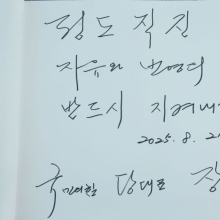 정도직진
자유와 번영의
반드시 지켜내
2025. 8. 2
국민의힘 당대표 장